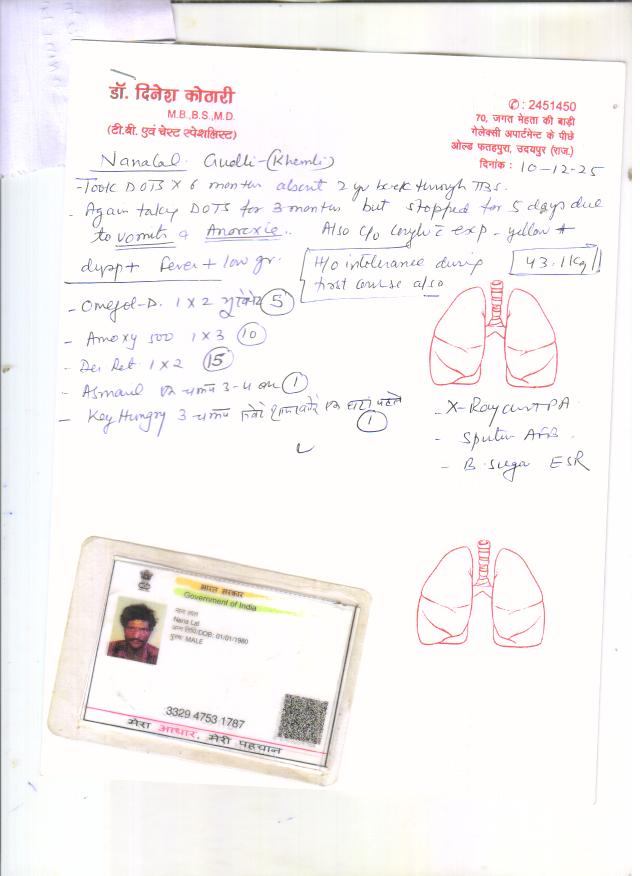 डॉ. दिनेश कोठारी
M.B.,B.S.,M.D.
(टी.बी. एवं चेस्ट स्पेशलिस्ट)
✆: 2451450
70, जगत मेहता की बाड़ी
गेलेक्सी अपार्टमेन्ट के पीछे
ओल्ड फतहपुरा, उदयपुर (राज.)
दिनांक: 10-12-25
Nanalal. Gudli-(Khemli)
-Took DOTS X 6 months about 2 yr back through TBS.
- Again taking DOTS for 3 months but stopped for 5 days due
to vomits & Anorexie. Also c/o cough c exp - yellow +
dysp+ fever + low gr.
H/o intolerance during
first course also
43.1 Kg
- Omezol-D. 1 X 2 5
- Amoxy 500 1 X 3 10
- Deri Ret 1 X 2 15
- Asmaul चम्मच 3-4 1
- Key Hungry 3 चम्मच पहले
1
- X-Ray chest PA
- Sputum AFB
- B. Suga ESR
भारत सरकार
Government of India
नाना लाल
Nana Lal
जन्म तिथि/DOB: 01/01/1980
पुरुष/ MALE
3329 4753 1787
मेरा आधार, मेरी पहचान